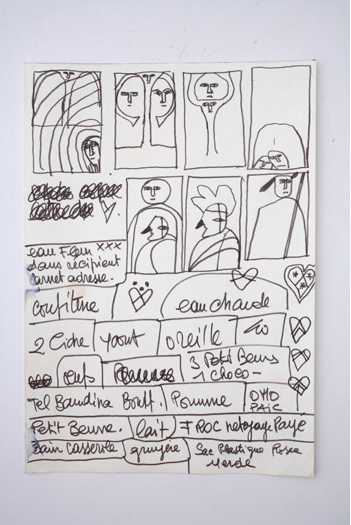 eau Fleur xxx
dans récipient
carnet adresse.
confitine eau chaude
2 Cidre Yaourt oreille
3 Petit Beurs
oeufs 1 choco-
Tel Bandina Pomme OMO
PAIC
Petit Beurre. lait ROC netoyage Paye
Bain Casserole gruyère Sac Plastique Rosée
Merde